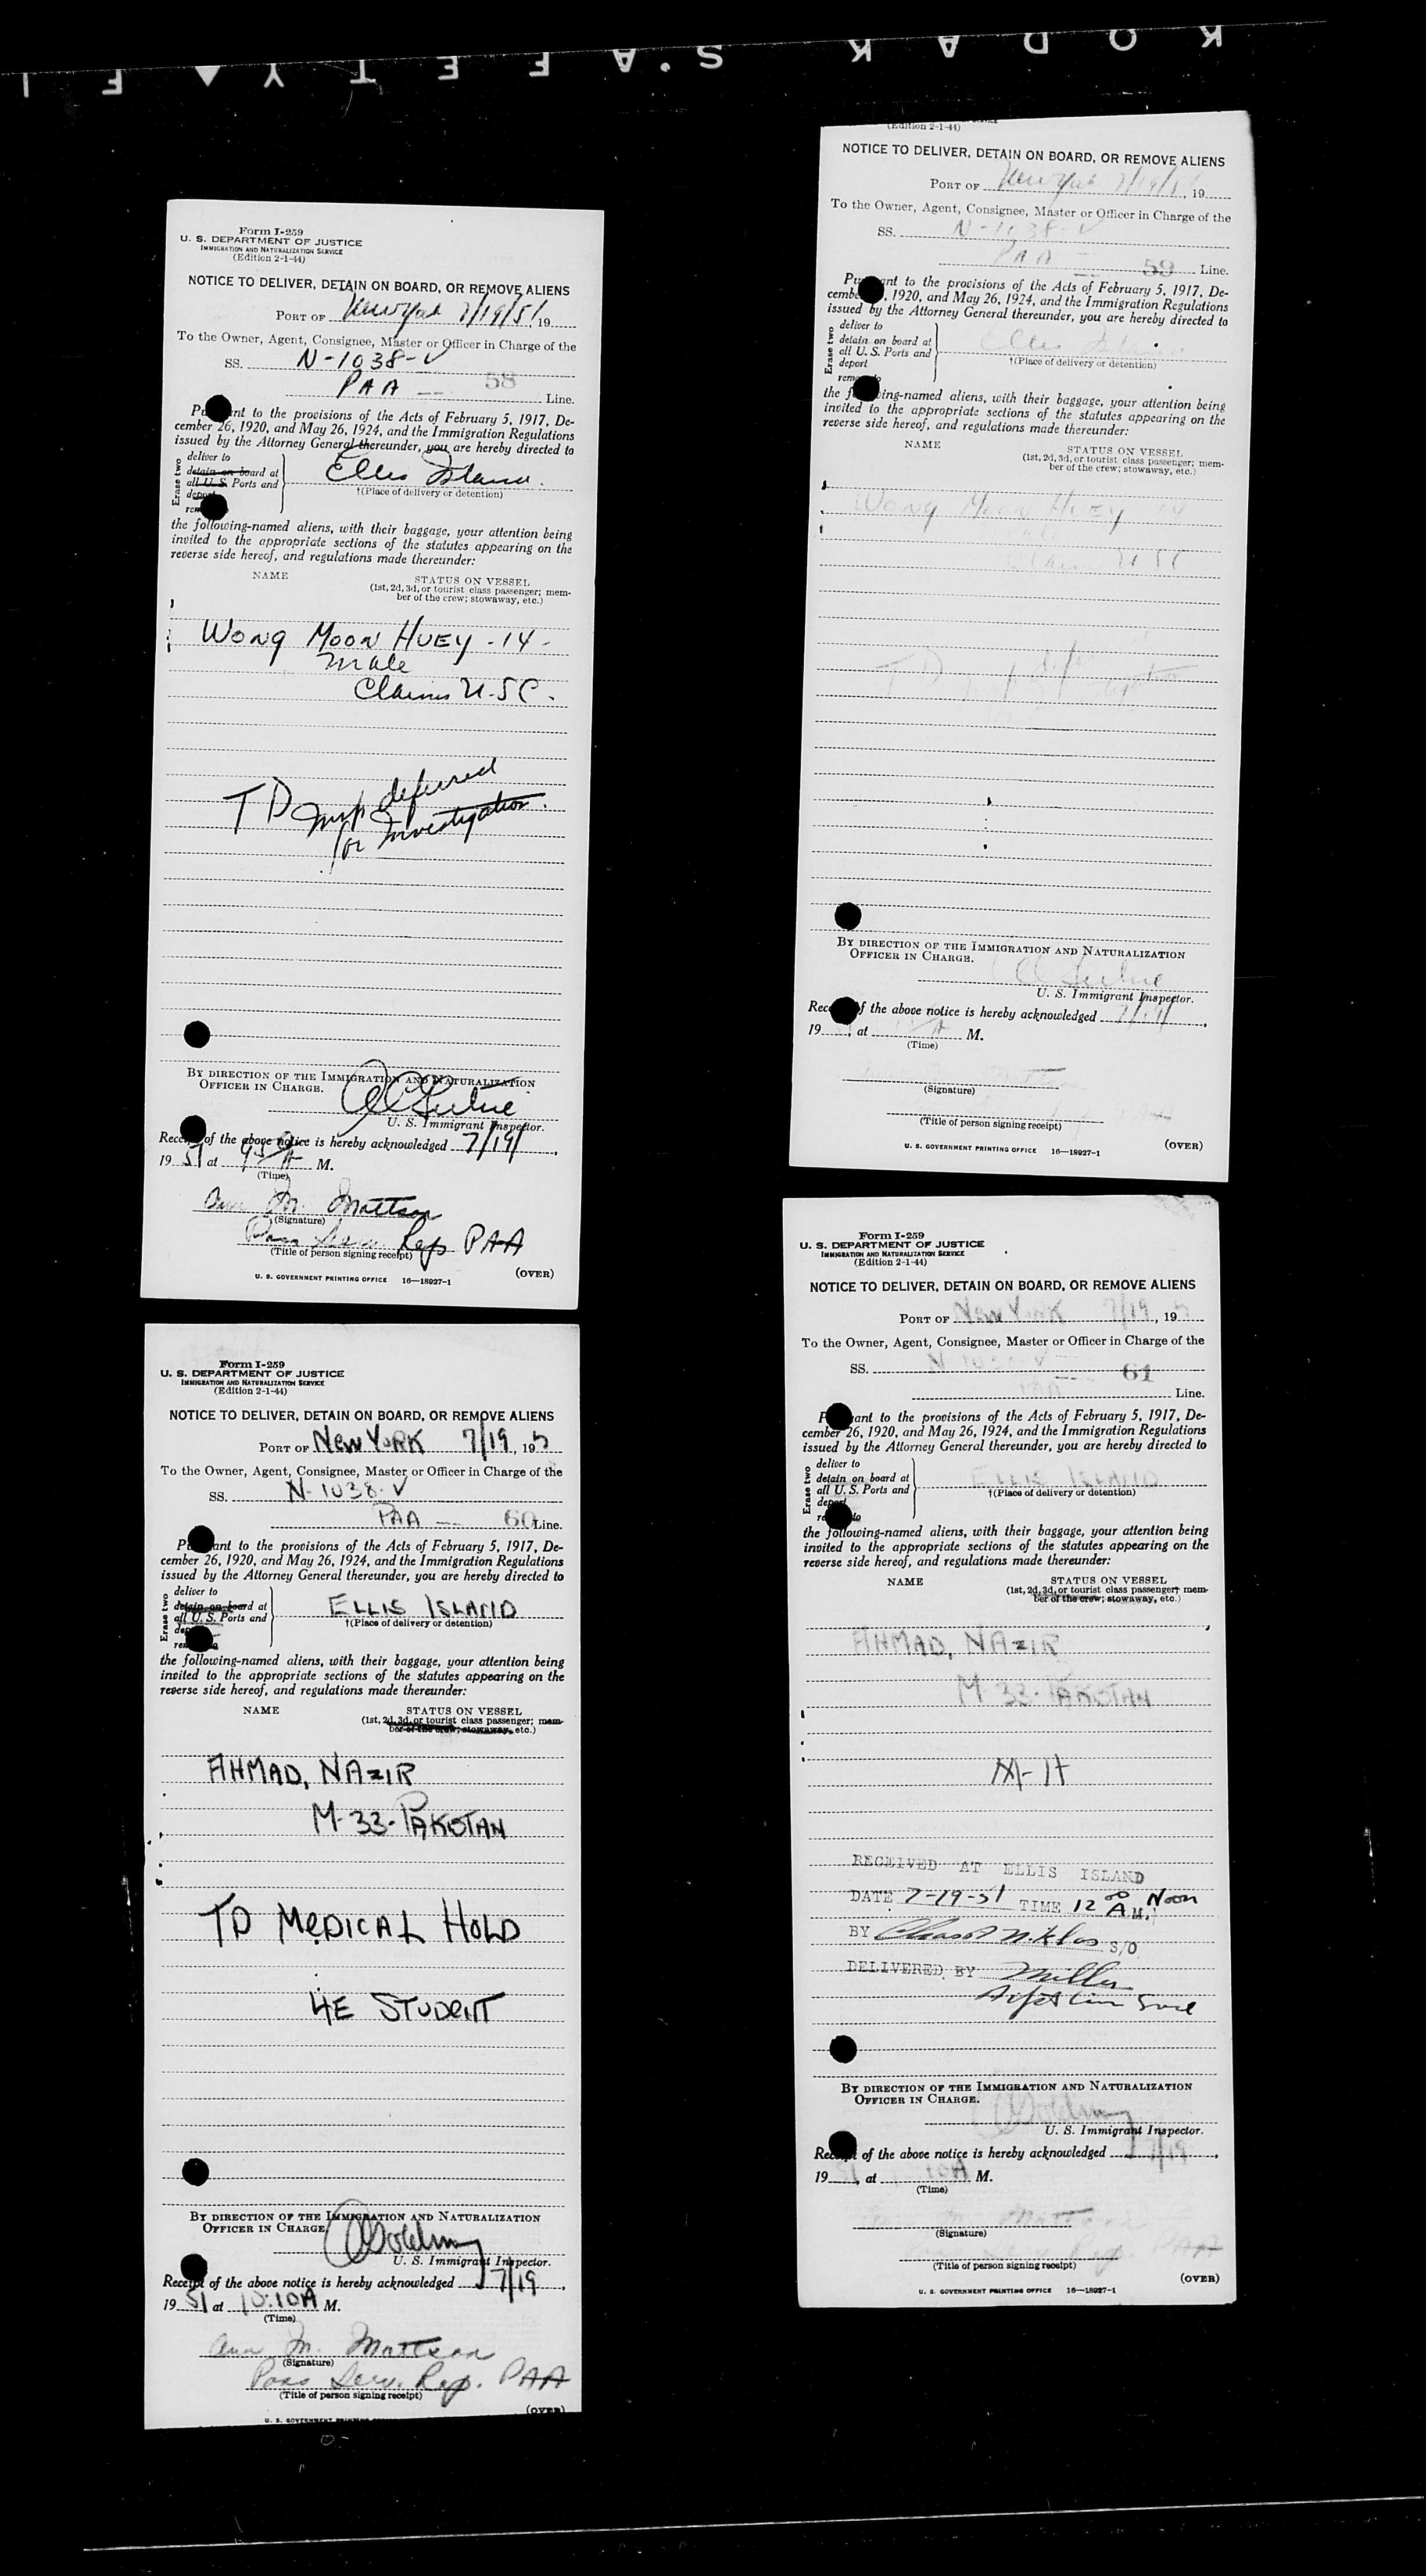 KODAK SAFETY FI
Form I-259
U. S. DEPARTMENT OF JUSTICE
IMMIGRATION AND NATURALIZATION SERVICE
(Edition 2-1-44)
NOTICE TO DELIVER, DETAIN ON BOARD, OR REMOVE ALIENS
PORT OF New York 7/19/51, 19
To the Owner, Agent, Consignee, Master or Officer in Charge of the
SS. N-1038-V
PAA — 58 Line.
Pu ant to the provisions of the Acts of February 5, 1917, De-
cember 26, 1920, and May 26, 1924, and the Immigration Regulations
issued by the Attorney General thereunder, you are hereby directed to
Erase two
deliver to
detain on board at
all U.S. Ports and
deport
rem
Ellis Island.
†(Place of delivery or detention)
the following-named aliens, with their baggage, your attention being
invited to the appropriate sections of the statutes appearing on the
reverse side hereof, and regulations made thereunder:
NAME
STATUS ON VESSEL
(1st, 2d, 3d, or tourist class passenger; mem-
ber of the crew; stowaway, etc.)
WONG MOON HUEY -14-
male
Claims U.S.C.
TD Insp deferred
for investigation.
BY DIRECTION OF THE IMMIGRATION AND NATURALIZATION
OFFICER IN CHARGE.
U. S. Immigrant Inspector.
Rece of the above notice is hereby acknowledged 7/19/,
19 51 at 955 A M.
(Time)
Ann M. Mattson
(Signature)
Pass Serv. Rep PAA
(Title of person signing receipt)
U. S. GOVERNMENT PRINTING OFFICE 16—18927-1
(OVER)
(Edition 2-1-44)
NOTICE TO DELIVER, DETAIN ON BOARD, OR REMOVE ALIENS
PORT OF New York 7/19/51, 19
To the Owner, Agent, Consignee, Master or Officer in Charge of the
SS. N-1038-V
PAA — 59 Line.
Pu ant to the provisions of the Acts of February 5, 1917, De-
cembe , 1920, and May 26, 1924, and the Immigration Regulations
issued by the Attorney General thereunder, you are hereby directed to
Erase two
deliver to
detain on board at
all U. S. Ports and
deport
remove to
Ellis Island
†(Place of delivery or detention)
the f ing-named aliens, with their baggage, your attention being
invited to the appropriate sections of the statutes appearing on the
reverse side hereof, and regulations made thereunder:
NAME
STATUS ON VESSEL
(1st, 2d, 3d, or tourist class passenger; mem-
ber of the crew; stowaway, etc.)
WONG MOON HUEY 14
male
Claims U.S.C
TD
BY DIRECTION OF THE IMMIGRATION AND NATURALIZATION
OFFICER IN CHARGE.
U. S. Immigrant Inspector.
Rec f the above notice is hereby acknowledged 7/19/,
19 , at A M.
(Time)
(Signature)
(Title of person signing receipt)
U. S. GOVERNMENT PRINTING OFFICE 16—18927-1
(OVER)
Form I-259
U. S. DEPARTMENT OF JUSTICE
IMMIGRATION AND NATURALIZATION SERVICE
(Edition 2-1-44)
NOTICE TO DELIVER, DETAIN ON BOARD, OR REMOVE ALIENS
PORT OF NEW YORK 7/19, 19
To the Owner, Agent, Consignee, Master or Officer in Charge of the
SS. N-1038-V
PAA — 60 Line.
P ant to the provisions of the Acts of February 5, 1917, De-
cember 26, 1920, and May 26, 1924, and the Immigration Regulations
issued by the Attorney General thereunder, you are hereby directed to
Erase two
deliver to
detain on board at
all U. S. Ports and
dep
rem
ELLIS ISLAND
†(Place of delivery or detention)
the following-named aliens, with their baggage, your attention being
invited to the appropriate sections of the statutes appearing on the
reverse side hereof, and regulations made thereunder:
NAME
STATUS ON VESSEL
(1st, 2d, 3d, or tourist class passenger; mem-
ber of the crew; stowaway, etc.)
AHMAD, NAZIR
M-33-PAKISTAN
TD MEDICAL HOLD
4E STUDENT
BY DIRECTION OF THE IMMIGRATION AND NATURALIZATION
OFFICER IN CHARGE.
U. S. Immigrant Inspector.
Receipt of the above notice is hereby acknowledged 7/19,
19 51 at 10:10A M.
(Time)
Ann M. Mattson
(Signature)
Pass Serv. Rep. PAA
(Title of person signing receipt)
(OVER)
U. S. GOVERNMENT PRINTING
Form I-259
U. S. DEPARTMENT OF JUSTICE
IMMIGRATION AND NATURALIZATION SERVICE
(Edition 2-1-44)
NOTICE TO DELIVER, DETAIN ON BOARD, OR REMOVE ALIENS
PORT OF NEW YORK 7/19, 19
To the Owner, Agent, Consignee, Master or Officer in Charge of the
SS. N-1038-V
PAA — 61 Line.
P ant to the provisions of the Acts of February 5, 1917, De-
cember 26, 1920, and May 26, 1924, and the Immigration Regulations
issued by the Attorney General thereunder, you are hereby directed to
Erase two
deliver to
detain on board at
all U. S. Ports and
deport
re to
ELLIS ISLAND
†(Place of delivery or detention)
the following-named aliens, with their baggage, your attention being
invited to the appropriate sections of the statutes appearing on the
reverse side hereof, and regulations made thereunder:
NAME
STATUS ON VESSEL
(1st, 2d, 3d, or tourist class passenger; mem-
ber of the crew; stowaway, etc.)
AHMAD, NAZIR
M-33-PAKISTAN
M-H
RECEIVED AT ELLIS ISLAND
DATE 7-19-51 TIME 12 00 A.M. Noon
BY Niklas S/O
DELIVERED BY Miller
BY DIRECTION OF THE IMMIGRATION AND NATURALIZATION
OFFICER IN CHARGE.
U. S. Immigrant Inspector.
Receipt of the above notice is hereby acknowledged 7/19,
19 51, at 10A M.
(Time)
M. Mattson
(Signature)
Rep. PAA
(Title of person signing receipt)
(OVER)
U. S. GOVERNMENT PRINTING OFFICE 16—18927-1